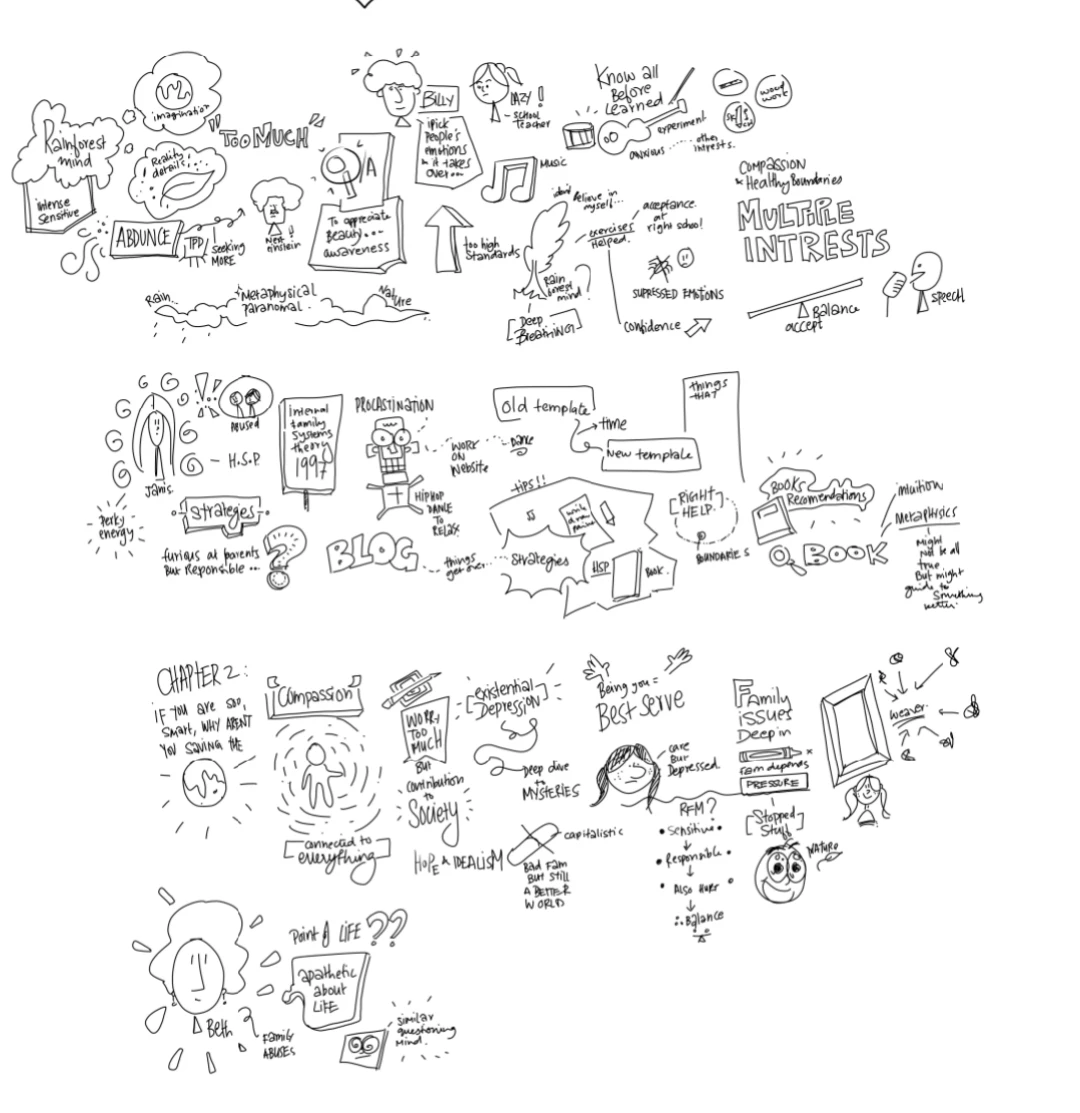 Rainforest
mind
intense
sensitive
imagination
Reality
details
ABDUNCE
TPD
seeking
MORE
Next
einstein
"TOO MUCH"
A
To appreciate
Beauty...
awareness
Rain..
Metaphysical
Paranomal
Nature
BILLY
iPick
people's
emotions
& it takes
over...
LAZY!
- School
Teacher
MUSIC
too high
standards
Know all
Before
Learned
experiment
anxious
other
intrests.
wood
work
didn't Believe in
myself...
exercises
Helped.
acceptance
at
right school
Rain
forest
mind?
[DEEP
BREATHING]
SUPRESSED EMOTIONS
confidence
COMPASSION
& Healthy Boundaries
MULTIPLE
INTRESTS
Balance
accept
SPEECH
Janis
PAUSED
- H.S.P
perky
energy
Strategies
furious at parents
But Responsible...
internal
family
systems
theory
1997
PROCASTINATION
WORK
ON
Website
DANCE
HIPHOP
DANCE
TO
RELAX
BLOG
things
get over...
Old template
time
New template
TIPS!!
write
draw
paint
Strategies
HSP
BOOK
things
THAT
[RIGHT]
HELP.
BOUNDARIES
BOOKS
Recomendations
BOOK
intuition
METAPHSICS
Might
Not be all
true
But might
guide to
Something
better.
CHAPTER 2:
IF YOU ARE SOO,
Smart, WHY ARENT
YOU SAVING THE
Compassion
connected to
everything
WORRY
TOO
MUCH
BUT
contribution
to
Society
HOPE & IDEALISM
existential
DEPRESSION
Deep dive
to
MYSTERIES
capitalistic
BAD FAM
BUT Still
A BETTER
WORLD
Being you =
Best serve
care
But
Depressed
RFM?
• Sensitive •
• Responsible •
• Also Hurt •
∴ Balance
Family
issues
Deep in
Fam depends
PRESSURE
[Stopped
Stuff]
NATURE
weaver
Beth
FAMILY
ABUSES
POINT OF LIFE??
apathetic
about
LIFE
similar
questioning
Mind.